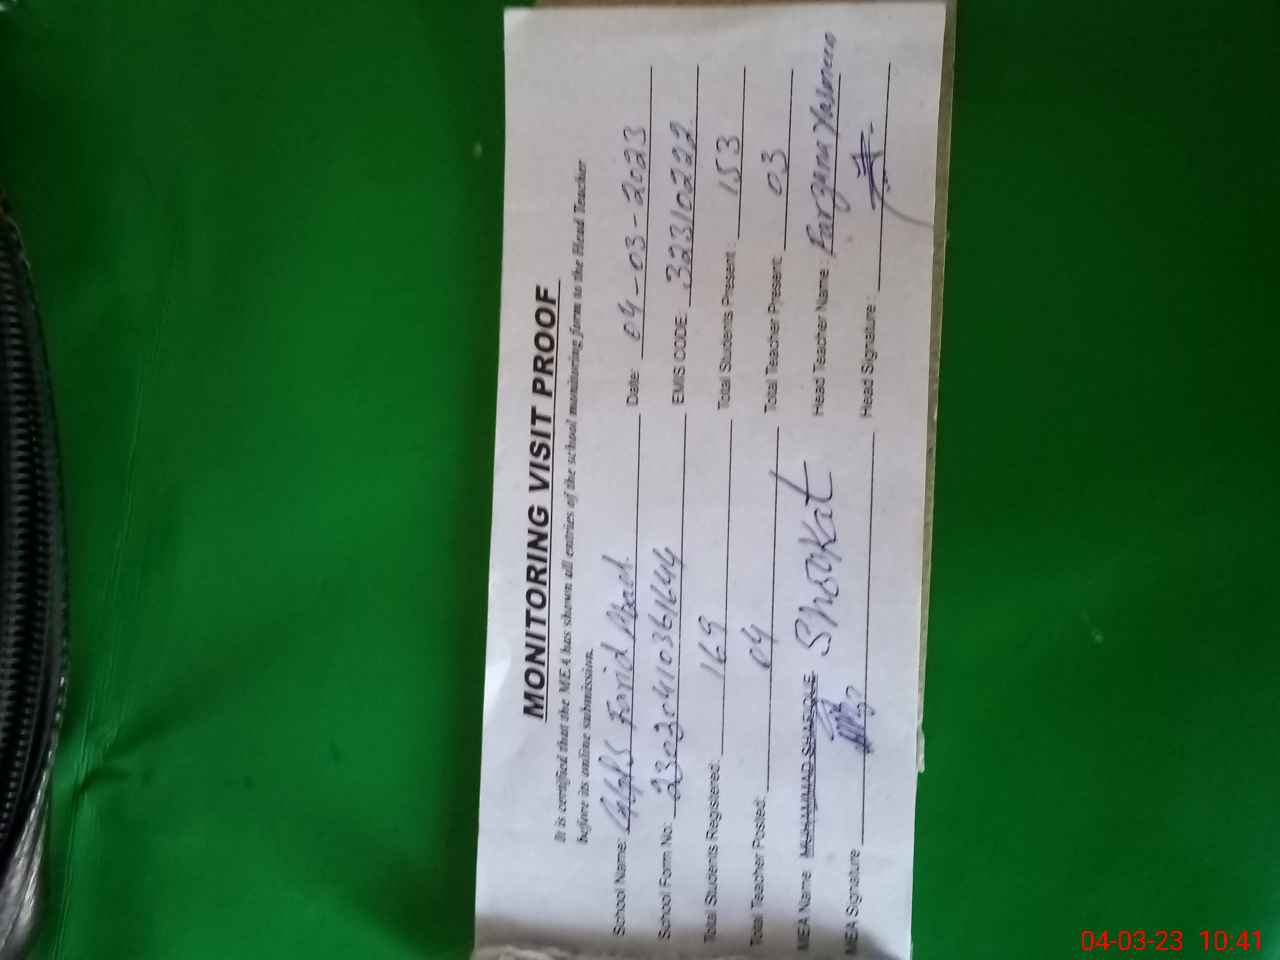 MONITORING VISIT PROOF
It is certified that the MEA has shown all entries of the school monitoring form to the Head Teacher
before its online submission.
School Name: GGPS Farid Abad. Date: 04-03-2023
School Form No: 2302041036164 EMIS CODE: 32310222
Total Students Registered: 169 Total Students Present: 153
Total Teacher Posted: 04 Total Teacher Present: 03
MEA Name MUHAMMAD SHAFIQUE Shookat Head Teacher Name: Farzana Yasmeen
MEA Signature Head Signature:
04-03-23 10:41